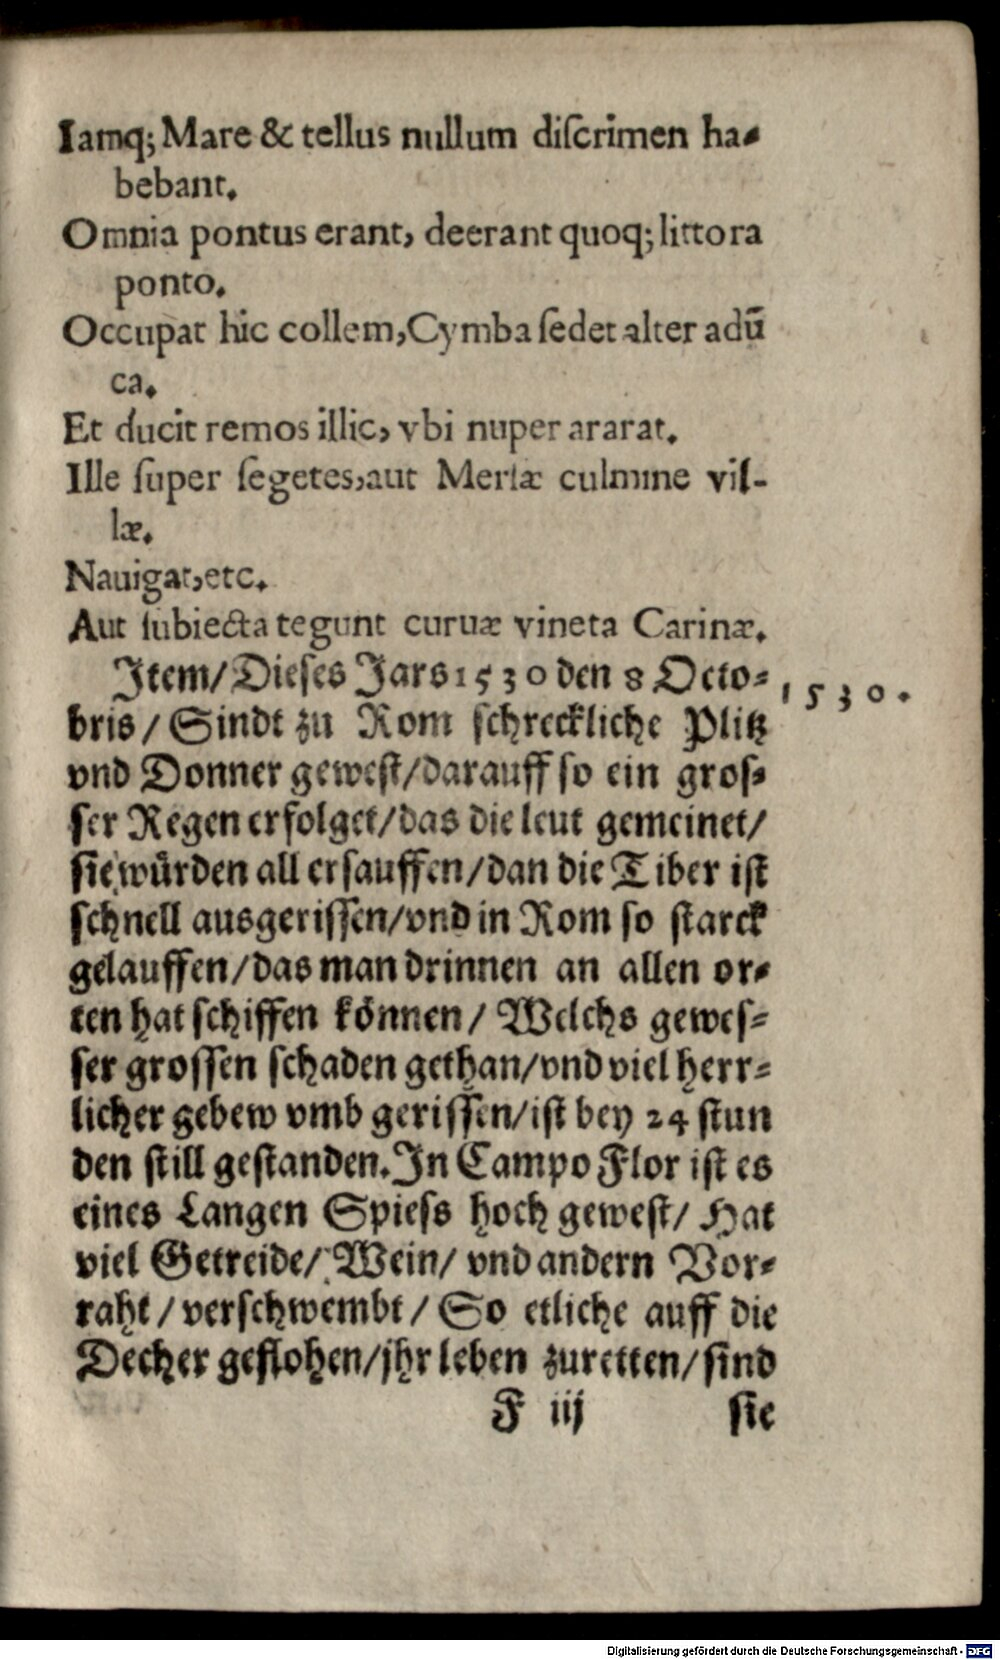 Iamq; Mare & tellus nullum diſcrimen ha-
bebant.
Omnia pontus erant, deerant quoq; littora
ponto.
Occupat hic collem, Cymba ſedet alter adū
ca.
Et ducit remos illic, vbi nuper ararat.
Ille ſuper ſegetes, aut Merſæ culmine vil-
læ.
Nauigat, etc.
Aut ſubiecta tegunt curuæ vineta Carinæ.
Item/ Dieſes Jars 1530 den 8 Octo-
1530.
bris/ Sindt zu Rom ſchreckliche Plitz
vnd Donner geweſt/ darauff ſo ein groſ-
ſer Regen erfolget/ das die leut gemeinet/
ſie würden all erſauffen/ dan die Tiber iſt
ſchnell ausgeriſſen/ vnd in Rom ſo ſtarck
gelauffen/ das man drinnen an allen or-
ten hat ſchiffen können/ Welchs geweſ-
ſer groſſen ſchaden gethan/ vnd viel herr-
licher gebew vmb geriſſen/ iſt bey 24 ſtun
den ſtill geſtanden. In Campo Flor iſt es
eines Langen Spieſs hoch geweſt/ Hat
viel Getreide/ Wein/ vnd andern Vor-
raht/ verſchwembt/ So etliche auff die
Decher geflohen/ jhr leben zuretten/ ſind
F iij ſie
Digitalisierung gefördert durch die Deutsche Forschungsgemeinschaft - DFG